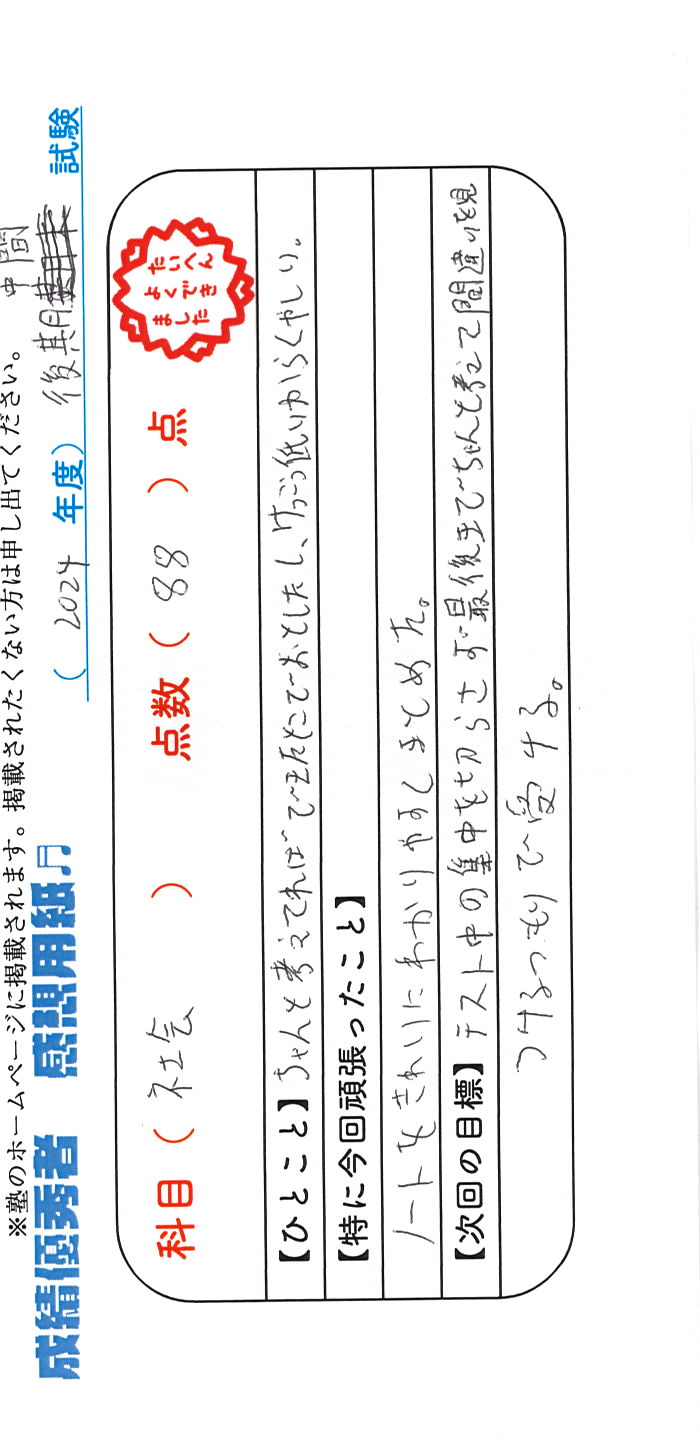 ※塾のホームページに掲載されます。掲載されたくない方は申し出てください。
成績優秀者 感想用紙♬
( 2024 年度) 後期 中間 試験
科目 ( 社会 ) 点数 ( 88 ) 点
たいへん
よくでき
ました
【ひとこと】ちゃんと考えてれば
でおとしたし、けっこう低いからくやしい。
【特に今回頑張ったこと】
ノートをきれいにわかりやすくまとめた。
【次回の目標】テスト中の集中を切らさず最後までちゃんと考えて間違いを見
つけるつもりで受ける。